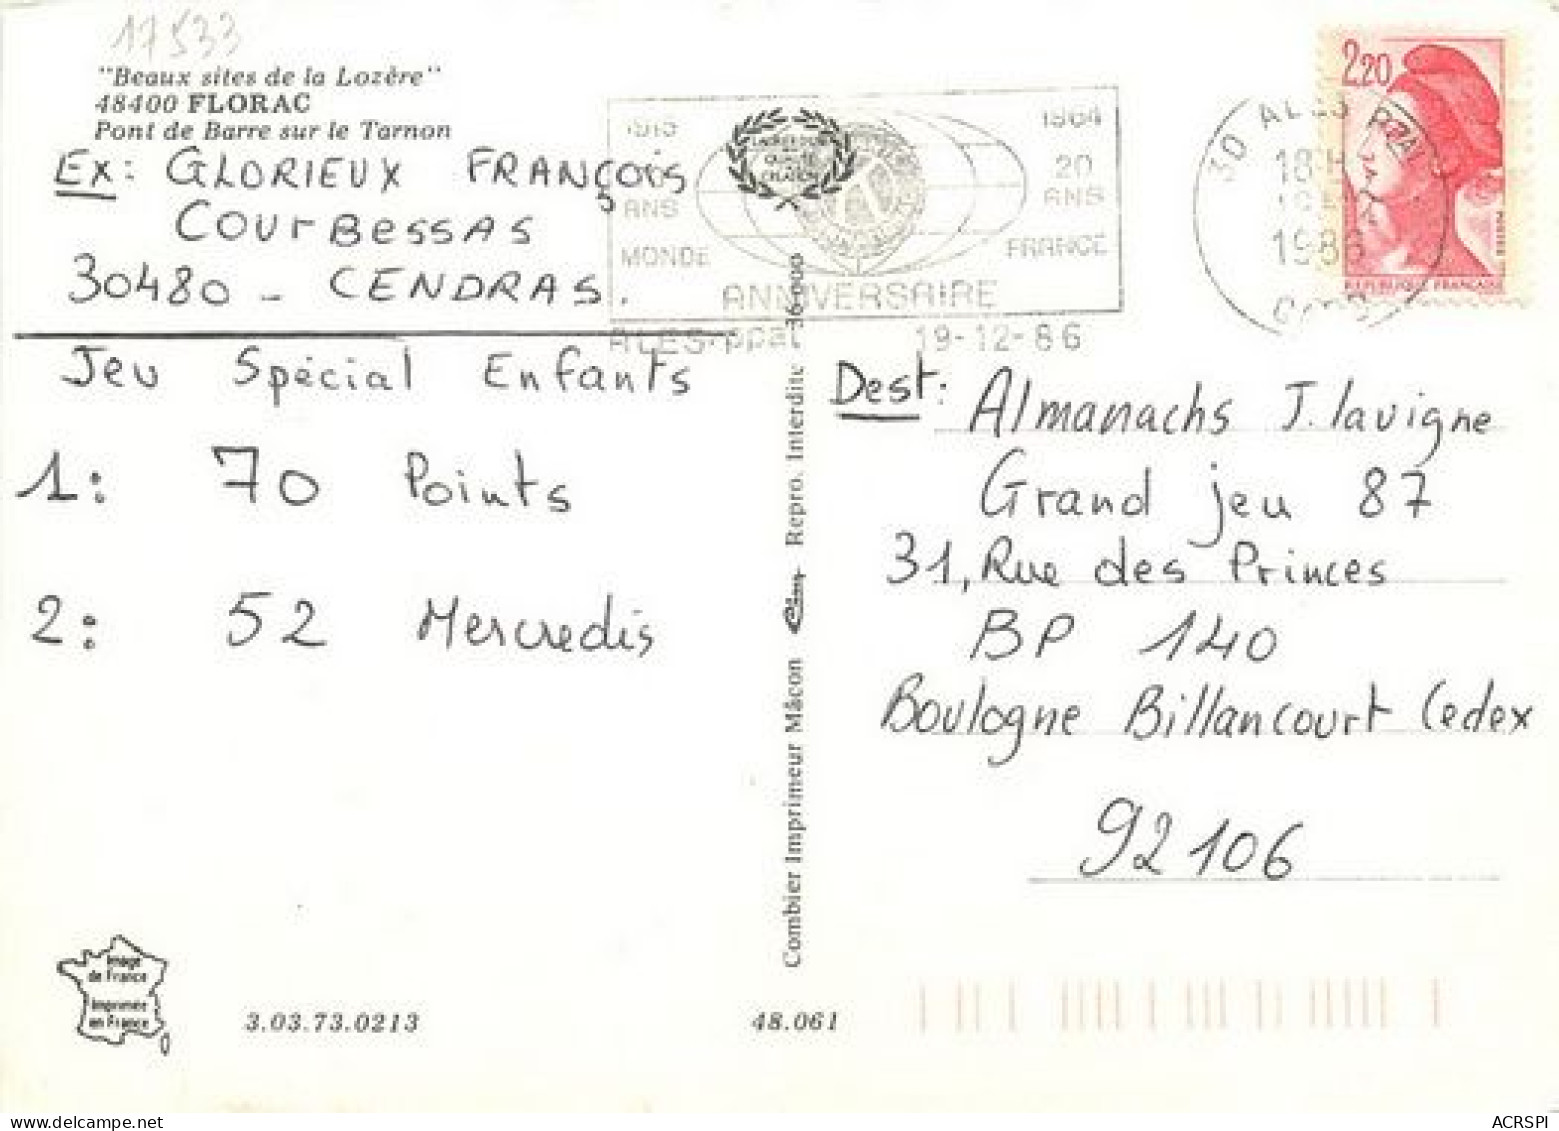 17533
"Beaux sites de la Lozère"
48400 FLORAC
Pont de Barre sur le Tarnon
Ex: GLORIEUX FRANÇois
COUrBessAs
30480 - CENDRAS.
Jeu Spécial Enfants
1: 70 Points
2: 52 Mercredis
ANS
MONDE
1964
20
ANS
FRANCE
ANNIVERSAIRE
ALES ppal 19-12-86
30 ALES PPAL
18H
1986
GARD
2,20
REPUBLIQUE FRANÇAISE
Combier Imprimeur Mâcon Repro. Interdite 36 000
Dest: Almanachs J. lavigne
Grand jeu 87
31, Rue des Princes
BP 140
Boulogne Billancourt Cedex
92106
Image
de France
Imprimée
en France
3.03.73.0213
48.061
ACRSPI